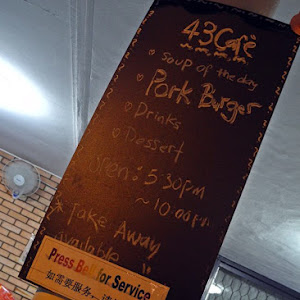 43Cafè
soup of the day
Pork Burger
Drinks
Dessert
open: 5:30pm
~10:00pm
* Take Away
available
Press Bell for Service
如需要服务,